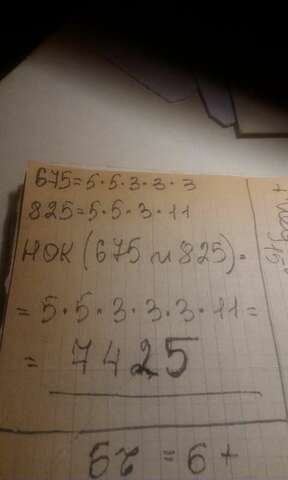 675=5·5·3·3·3
825=5·5·3·11
НОК(675 и 825)=
=5·5·3·3·3·11=
=7425